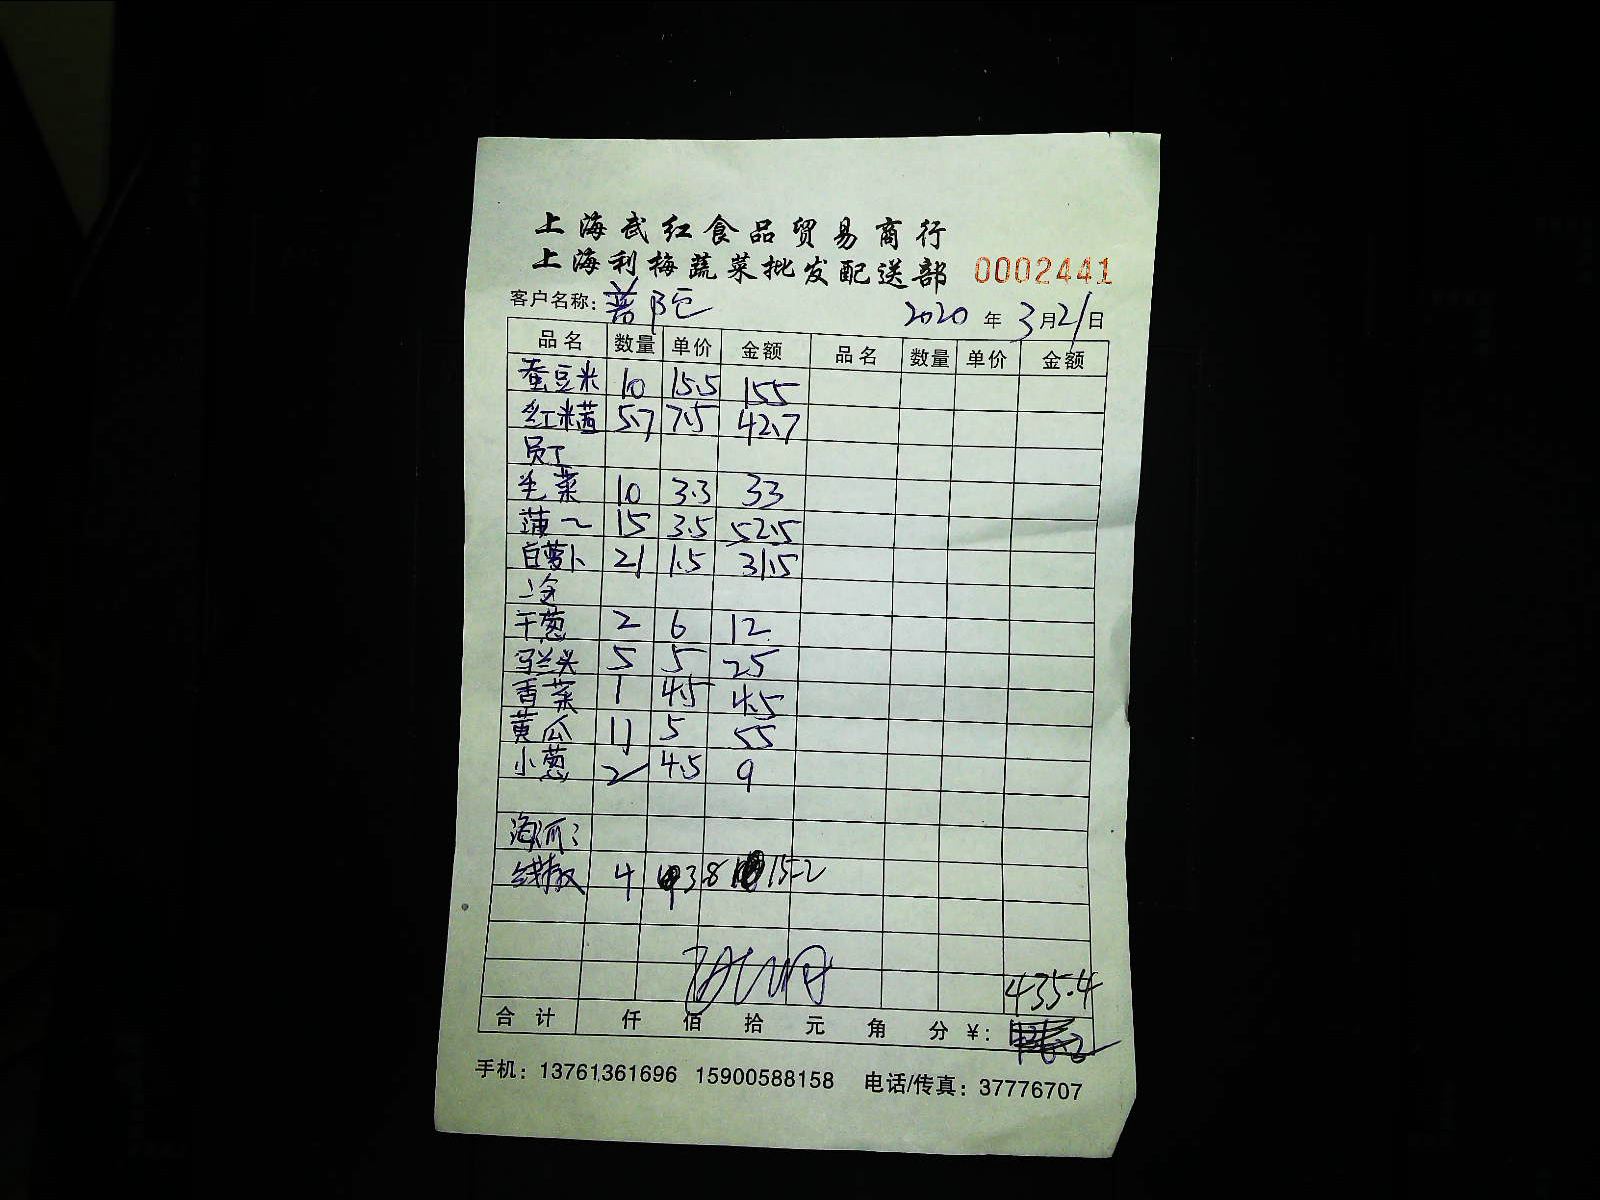 上海武红食品贸易商行
上海利梅蔬菜批发配送部 0002441
客户名称: 普陀 2020 年 3 月 21 日
品名 数量 单价 金额 品名 数量 单价 金额
蚕豆米 10 15.5 155
红米苋 5.7 7.5 42.7
员工
毛菜 10 3.3 33
蒲~ 15 3.5 52.5
白萝卜 21 1.5 31.5
干葱 2 6 12
马兰头 5 5 25
香菜 1 4.5 4.5
黄瓜 11 5 55
小葱 2 4.5 9
线椒 4 3.8 15.2
435.4
合计 仟 佰 拾 元 角 分 ¥:
手机: 13761361696 15900588158 电话/传真: 37776707